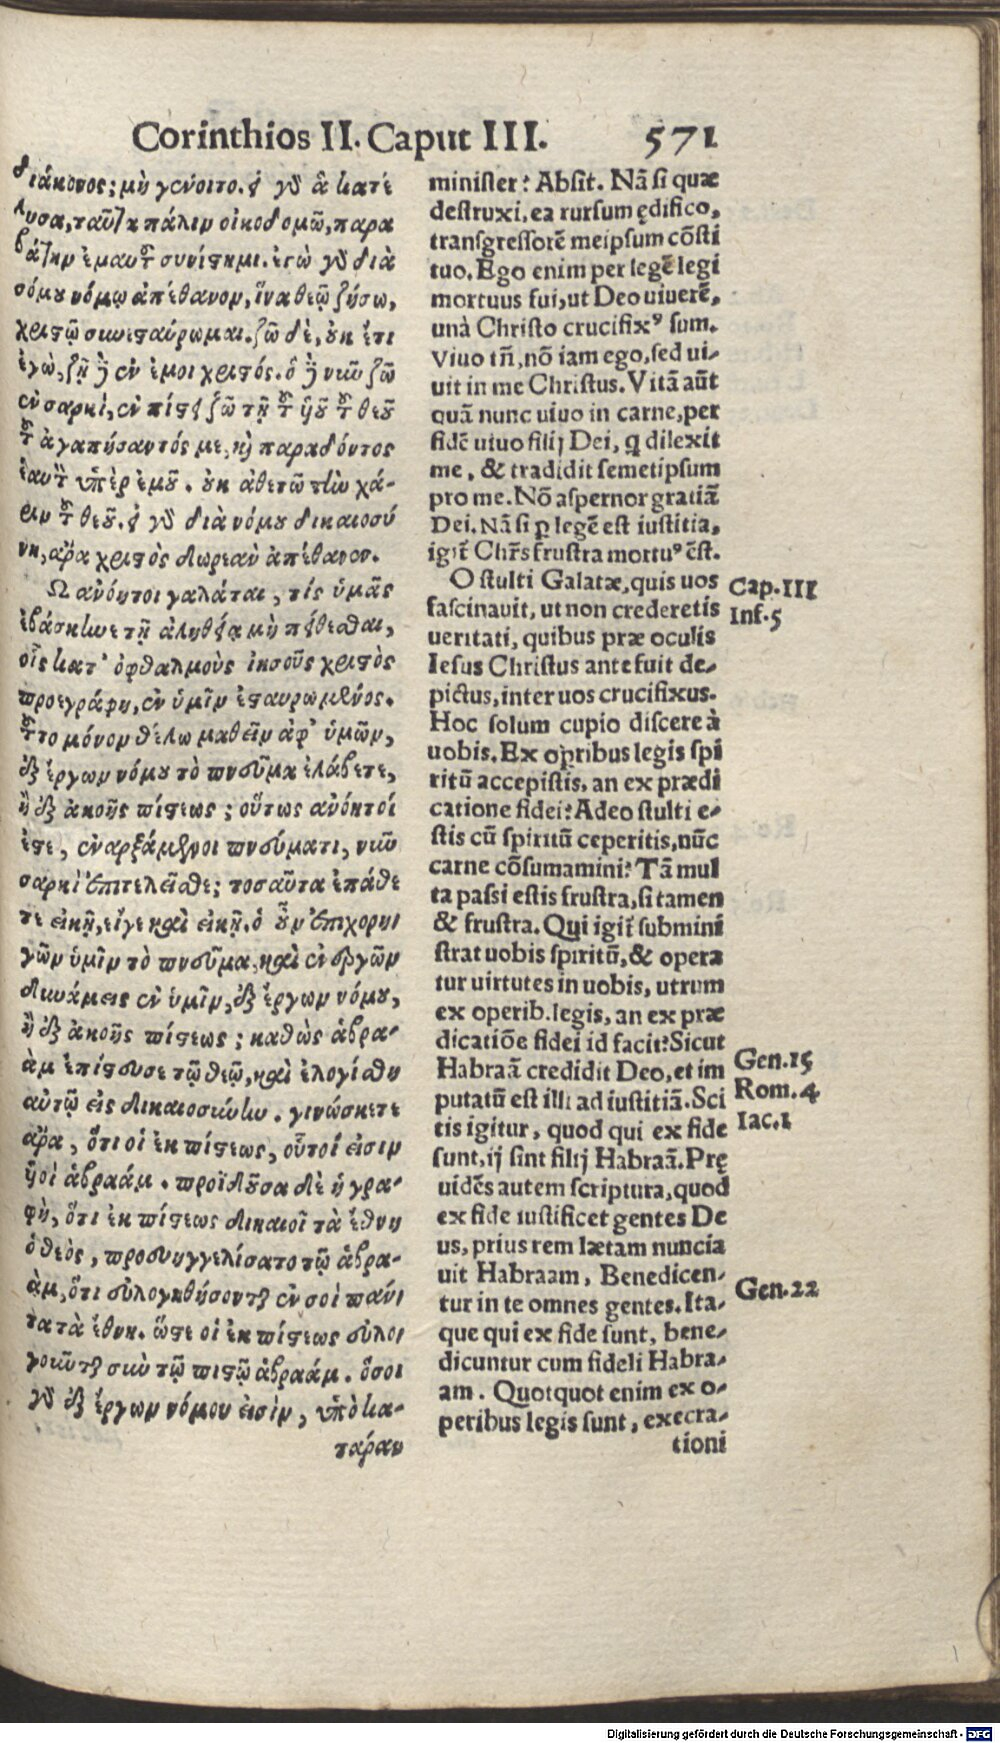 Corinthios II. Caput III. 571
διάκονος; μὴ γένοιτο. εἰ γὸ ἃ κατέ
λυσα, ταῦτα πάλιν οἰκοδομῶ, παρα
βάτην ἐμαυτὸν συνίστημι. ἐγὼ γὸ διὰ
νόμου νόμῳ ἀπέθανον, ἵνα θεῷ ζήσω,
χριστῷ συνεσταύρωμαι. ζῶ δὲ, οὐκ ἔτι
ἐγὼ, ζῇ δὲ ἐν ἐμοι χριστός. ὃ δὲ νιῦ ζῶ
ἐν σαρκὶ, ἐν πίστει ζῶ τῇ τοῦ ὑοῦ τοῦ θεοῦ
τοῦ ἀγαπήσαντός με, καὶ παραδόντος
ἑαυτὸν ὑπὲρ ἐμοῦ. οὐκ ἀθετῶ τὴν χά-
ριν τοῦ θεοῦ. εἰ γὸ διὰ νόμου δικαιοσύ
νη, ἄρα χριστὸς δωρεὰν ἀπέθανεν.
Ω ἀνόητοι γαλάται, τίς ὑμᾶς
ἐβάσκηνε τῇ ἀληθείᾳ μὴ πείθεσθαι,
οἷς κατ' ὀφθαλμοὺς ἰησοῦς χριστὸς
προεγράφη, ἐν ὑμῖν ἐσταυρωμένος.
τοῦτο μόνον θέλω μαθεῖν ἀφ' ὑμῶν,
ἐξ ἔργων νόμου τὸ πνεῦμα ἐλάβετε,
ἢ ἐξ ἀκοῆς πίστεως; οὕτως ἀνόητοί
ἐστε, ἐναρξάμενοι πνεύματι, νιῦ
σαρκὶ ἐπιτελεῖσθε; τοσαῦτα ἐπάθε
τε εἰκῇ, εἴγε καὶ εἰκῇ. ὁ οὖν ἐπιχορηι
γῶν ὑμῖν τὸ πνεῦμα, καὶ ἐνεργῶν
δυνάμεις ἐν ὑμῖν, ἐξ ἔργων νόμου,
ἢ ἐξ ἀκοῆς πίστεως; καθὼς ἀβρα-
ὰμ ἐπίστευσε τῷ θεῷ, καὶ ἐλογίσθη
αὐτῷ εἰς δικαιοσύνην. γινώσκετε
ἄρα, ὅτι οἱ ἐκ πίστεως, οὗτοί εἰσιν
ὑοὶ ἀβραάμ. προϊδοῦσα δὲ ἡ γρα-
φὴ, ὅτι ἐκ πίστεως δικαιοῖ τὰ ἔθνη
ὁ θεὸς, προευηγγελίσατο τῷ ἀβρα-
ὰμ, ὅτι εὐλογηθήσονται ἐν σοὶ πάν
τα τὰ ἔθνη. ὥστε οἱ ἐκ πίστεως εὐλο
γοιῦται σιὺ τῷ πιστῷ ἀβραάμ. ὅσοι
γὸ ἐξ ἔργων νόμου εἰσὶν, ὑπὸ κα-
τάραν
minister? Absit. Nã si quæ
destruxi, ea rursum ędifico,
transgressorẽ meipsum cõsti
tuo. Ego enim per legẽ legi
mortuus fui, ut Deo uiuerẽ,
unà Christo crucifixꝰ sum.
Viuo tñ, nõ iam ego, sed ui-
uit in me Christus. Vitã aũt
quã nunc uiuo in carne, per
fidẽ uiuo filij Dei, q dilexit
me, & tradidit semetipsum
pro me. Nõ aspernor gratiã
Dei. Nã si ꝑ legẽ est iustitia,
igit̃ Chr̃s frustra mortuꝰ ẽst.
O stulti Galatæ, quis uos
fascinauit, ut non crederetis
ueritati, quibus præ oculis
Iesus Christus ante fuit de-
pictus, inter uos crucifixus.
Hoc solum cupio discere à
uobis. Ex opribus legis spi
ritũ accepistis, an ex prædi
catione fidei? Adeo stulti e-
stis cũ spiritũ ceperitis, nũc
carne cõsumamini? Tã mul
ta passi estis frustra, si tamen
& frustra. Qui igit̃ submini
strat uobis spiritũ, & opera
tur uirtutes in uobis, utrum
ex operib. legis, an ex præ
dicatiõe fidei id facit? Sicut
Habraã credidit Deo, et im
putatũ est illi ad iustitiã. Sci
tis igitur, quod qui ex fide
sunt, ij sint filij Habraã. Prę
uidẽs autem scriptura, quod
ex fide iustificet gentes De
us, prius rem lætam nuncia
uit Habraam, Benedicen-
tur in te omnes gentes. Ita-
que qui ex fide sunt, bene-
dicuntur cum fideli Habra-
am. Quotquot enim ex o-
peribus legis sunt, execra-
tioni
Cap. III
Inf. 5
Gen. 15
Rom. 4
Iac. 1
Gen. 22
Digitalisierung gefördert durch die Deutsche Forschungsgemeinschaft - DFG